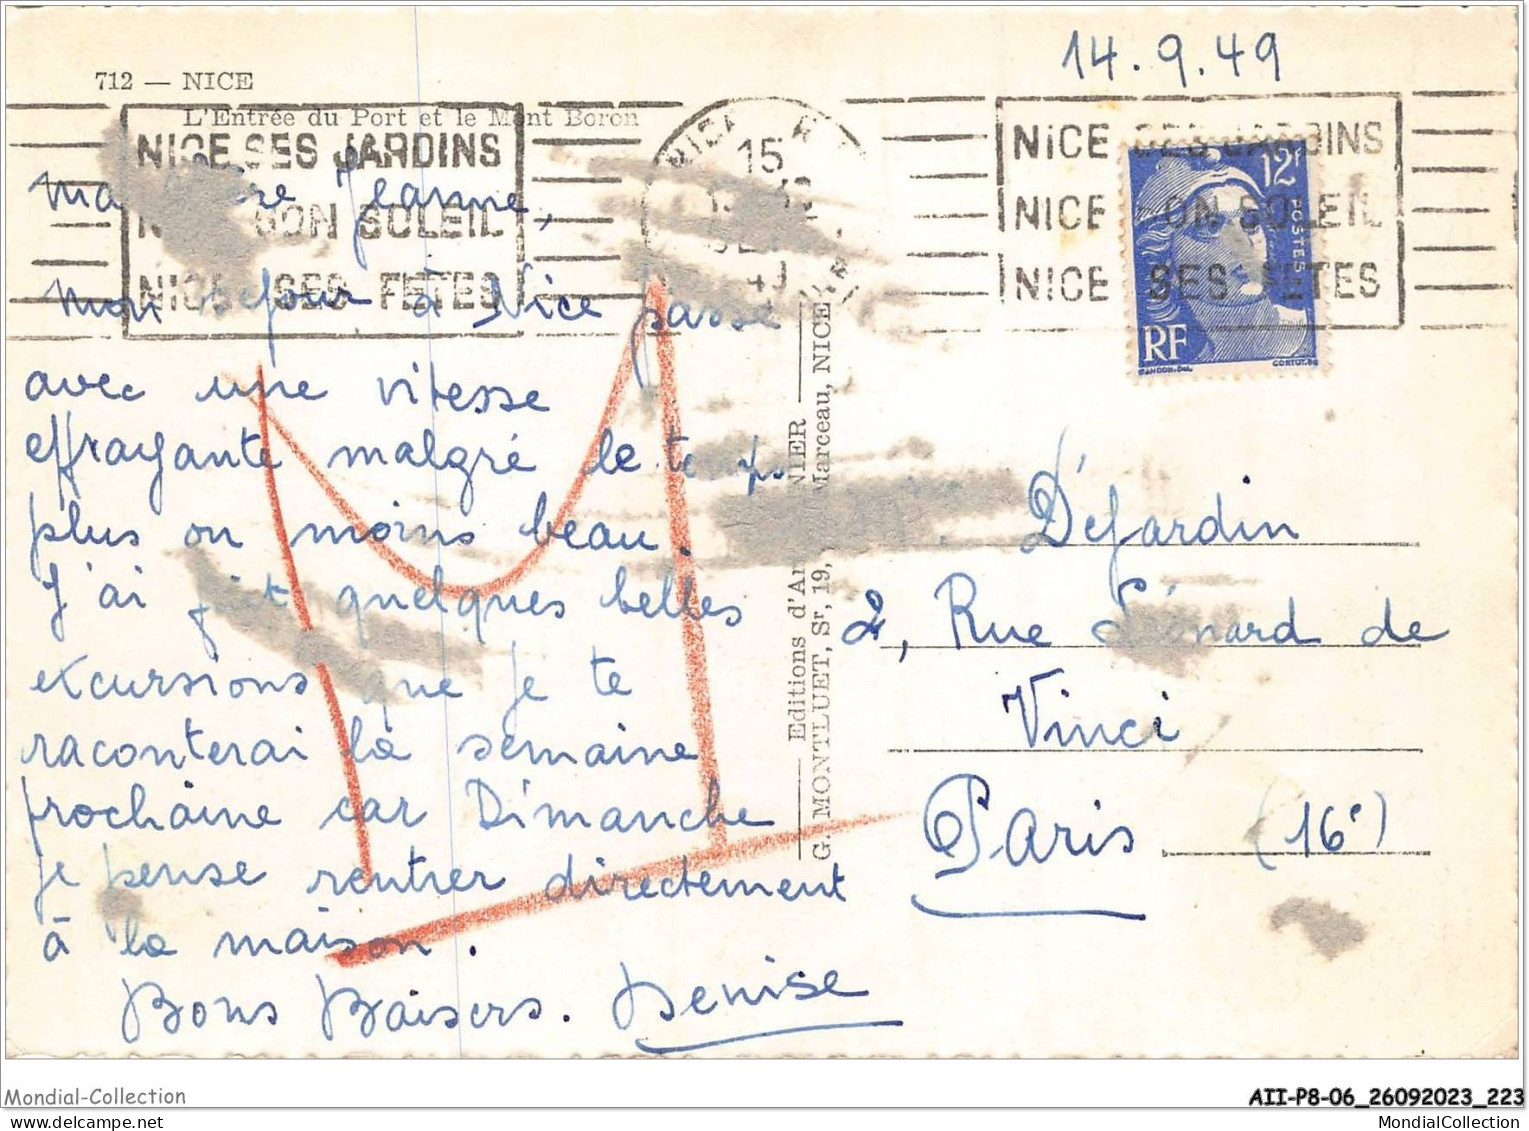 14.9.49
712 — NICE
L'Entrée du Port et le Mont Boron
NICE SES JARDINS
NICE SON SOLEIL
NICE SES FETES
15
49
NICE SES JARDINS
NICE SON SOLEIL
NICE SES FETES
12F
POSTES
RF
GANDON.DEL
CORTOT.SC
Ma chère Jeanne,
mon séjour à Nice passe
avec une vitesse
effrayante malgré le temps
plus ou moins beau.
J'ai fait quelques belles
excursions que je te
raconterai la semaine
prochaine car Dimanche
je pense rentrer directement
à la maison.
Bons Baisers. Denise
Editions d'Art NIER
G. MONTLUET, Sr, 19, Marceau, NICE
Déjardin
2, Rue Léonard de
Vinci
Paris (16e)
Mondial-Collection
AII-P8-06_26092023_223
MondialCollection